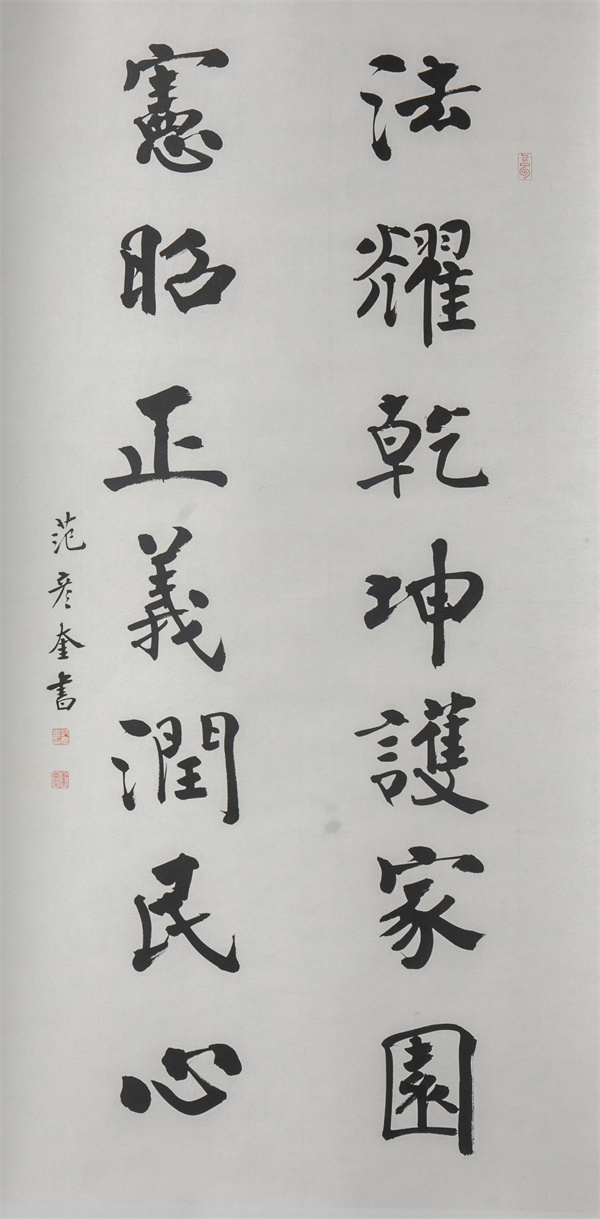 法耀乾坤護家園
憲昭正義潤民心
范彦奎書